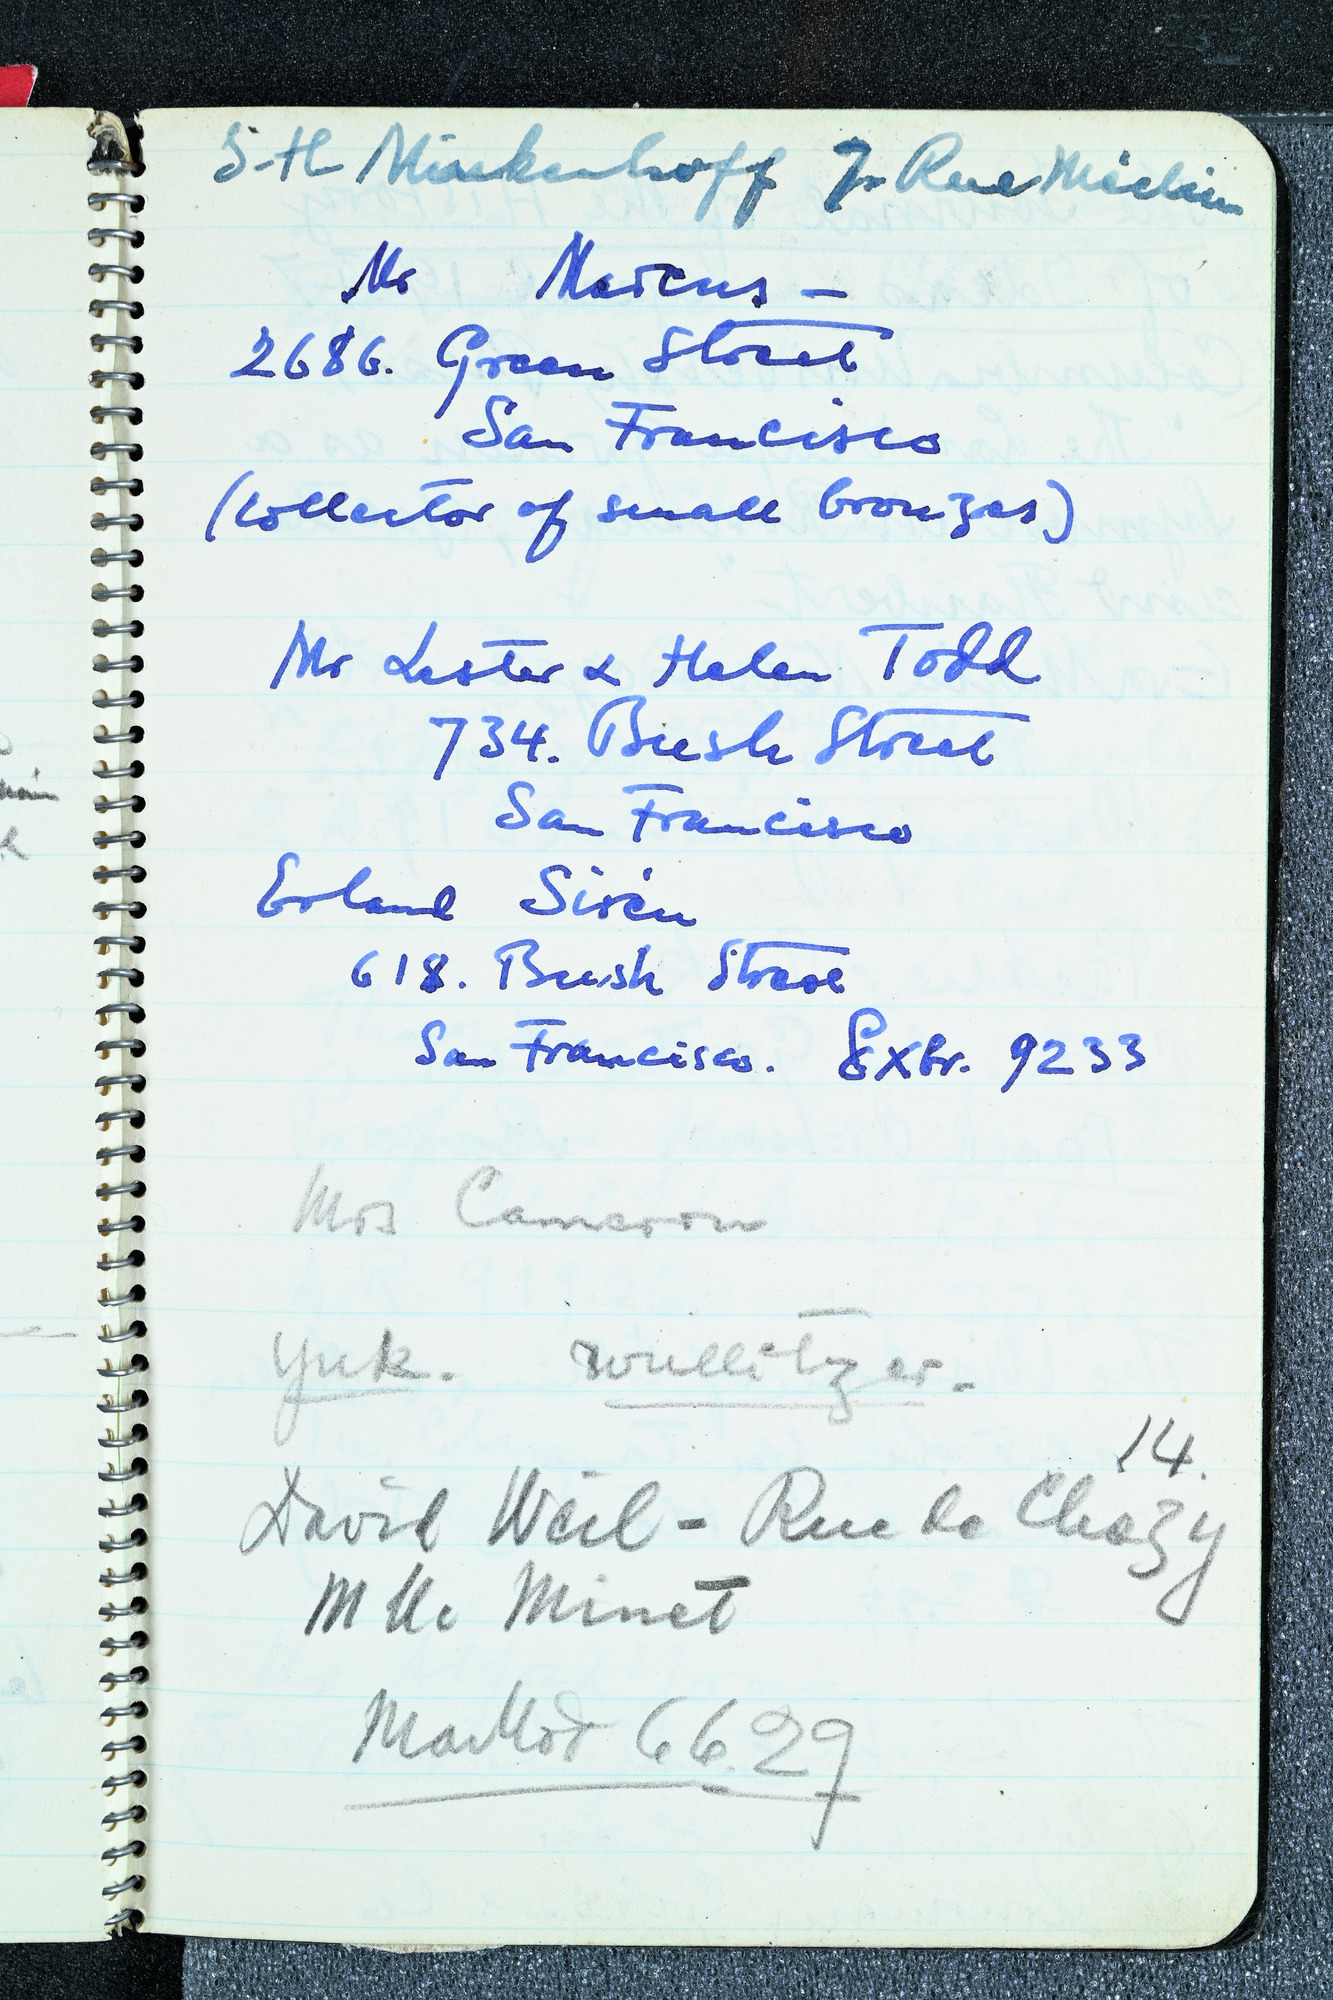 S-H Minkenhoff 7. Rue Méchain
Mr Marcus -
2686. Green Street
San Francisco
(collector of small bronzes)
Mr Lester & Helen Todd
734. Bush Street
San Francisco
Erland Sirén
618. Bush Street
San Francisco. Exbr. 9233
Mrs Cameron
Yuk. Wullitzer.
14.
David Weil - Rue de Chazy
Mlle Minet
66.29